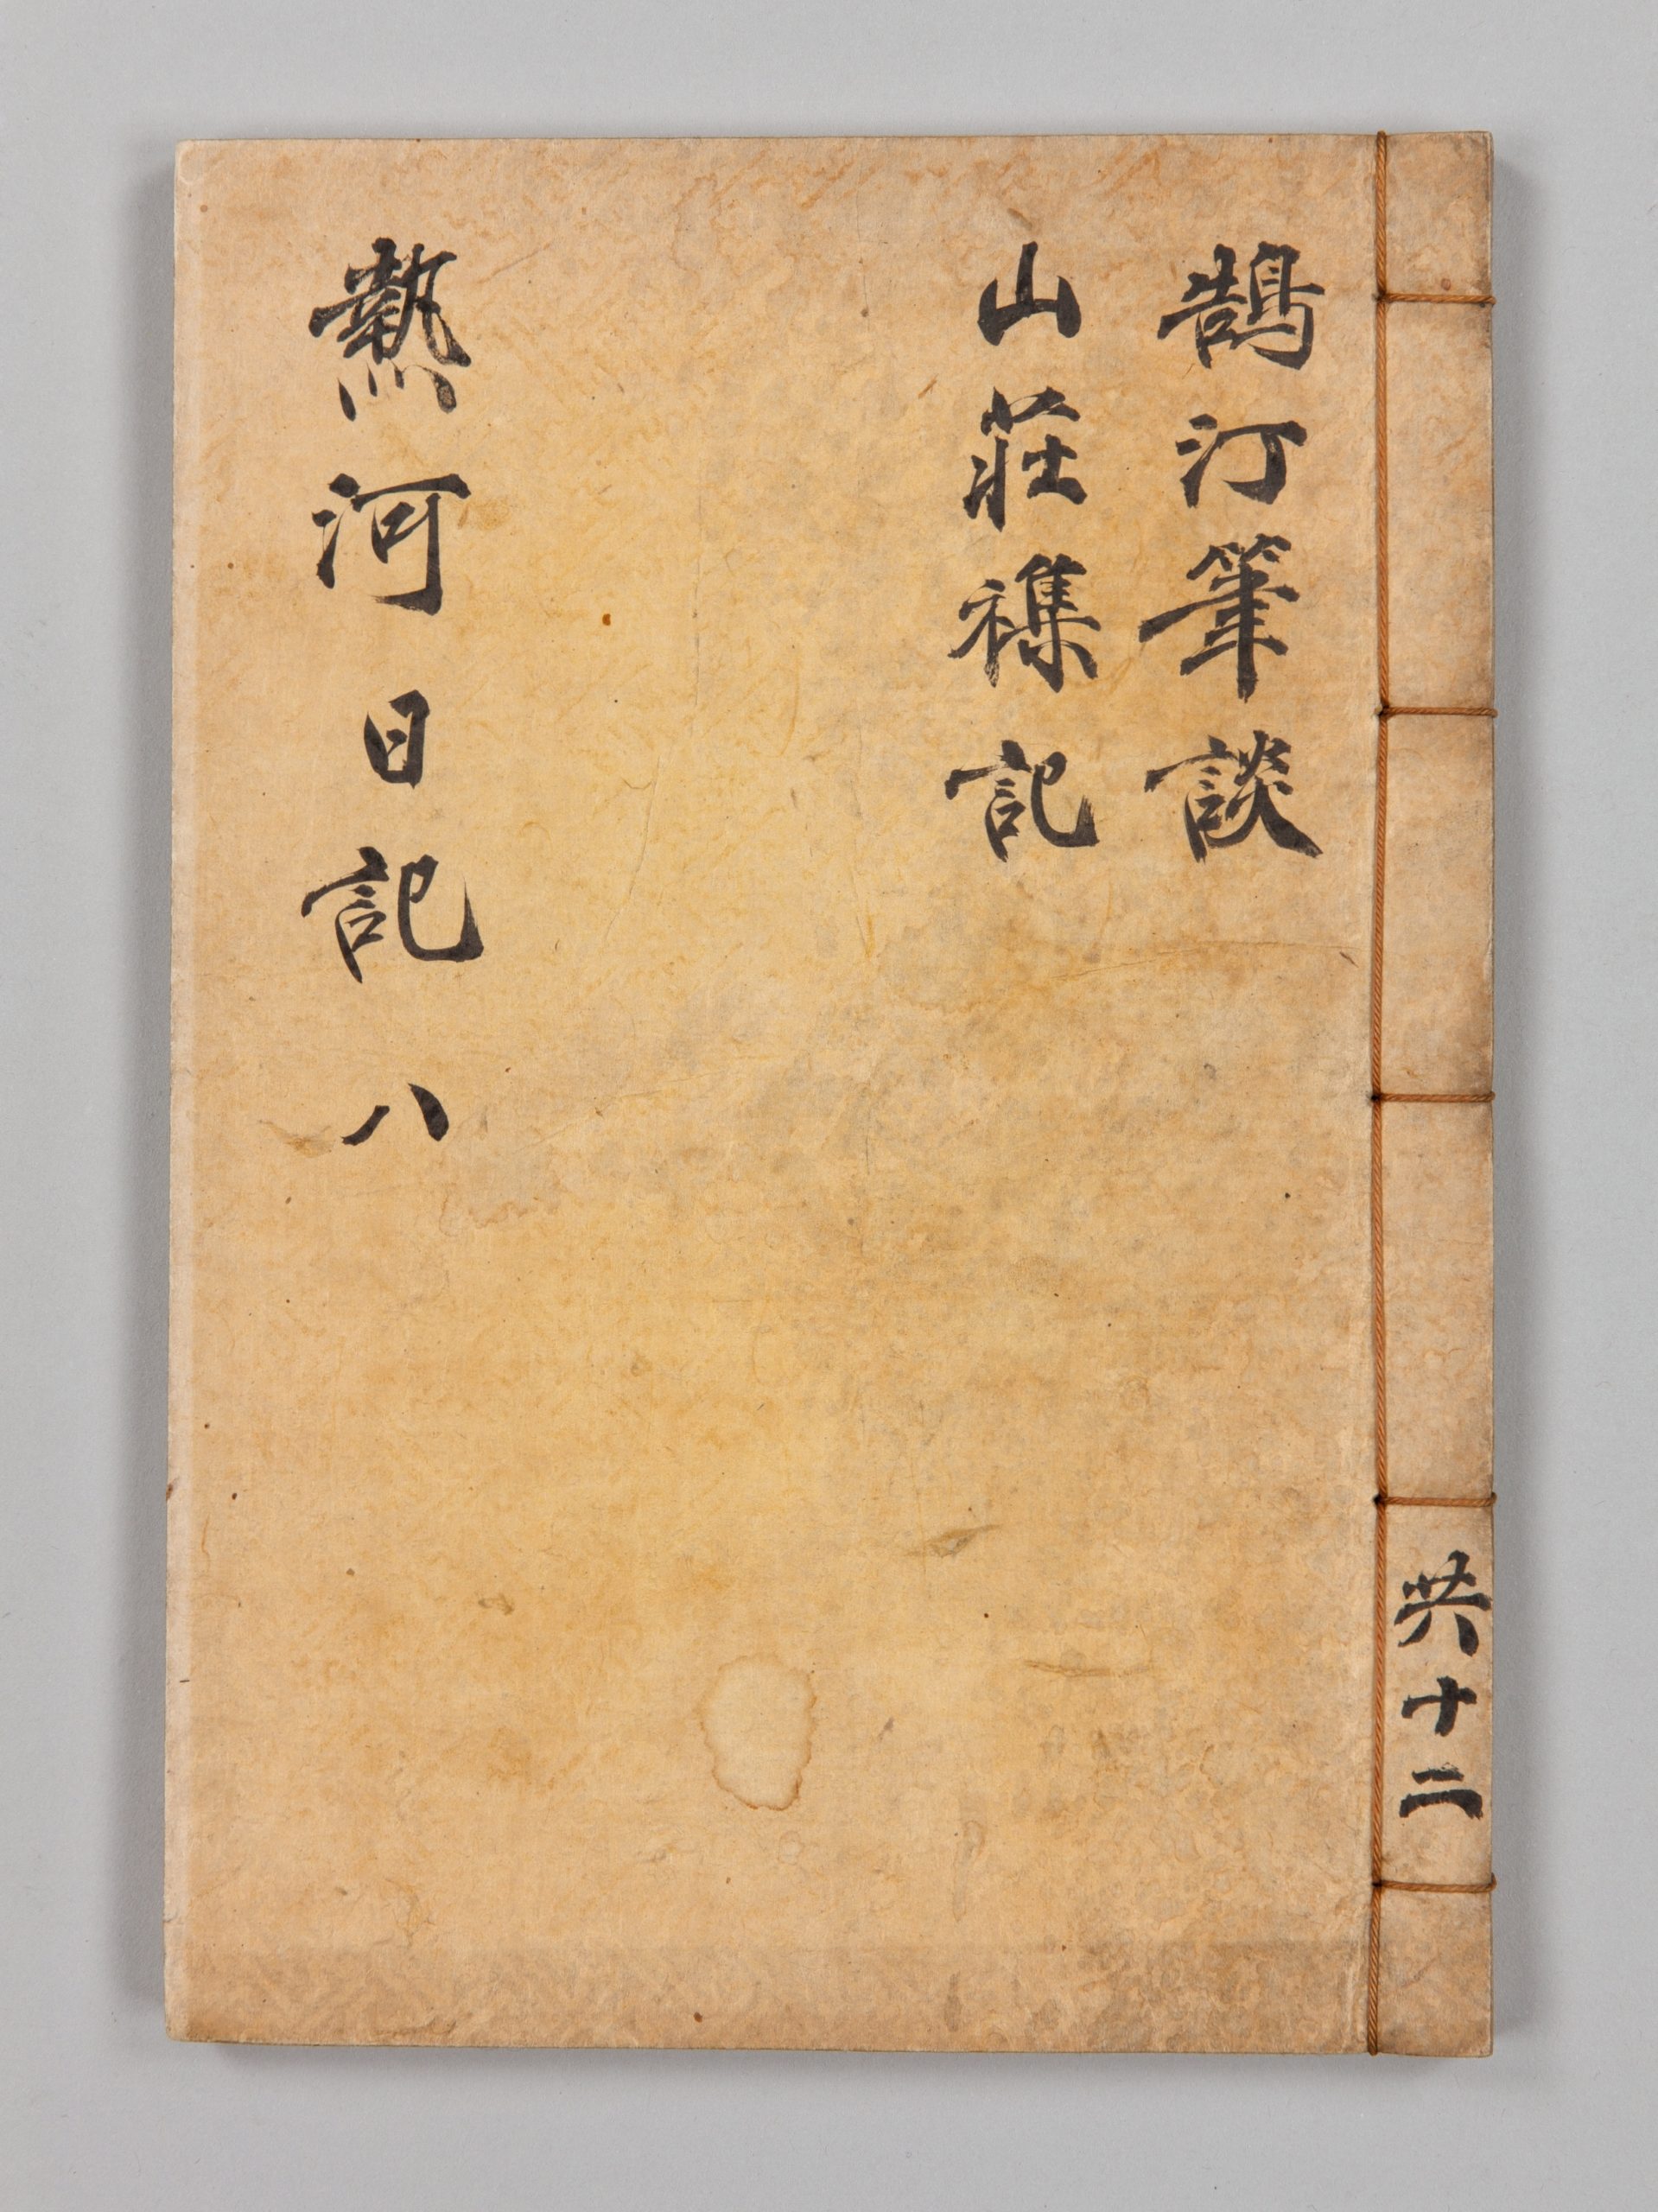 鵠汀筆談
山莊襍記
熱河日記 八
共十二